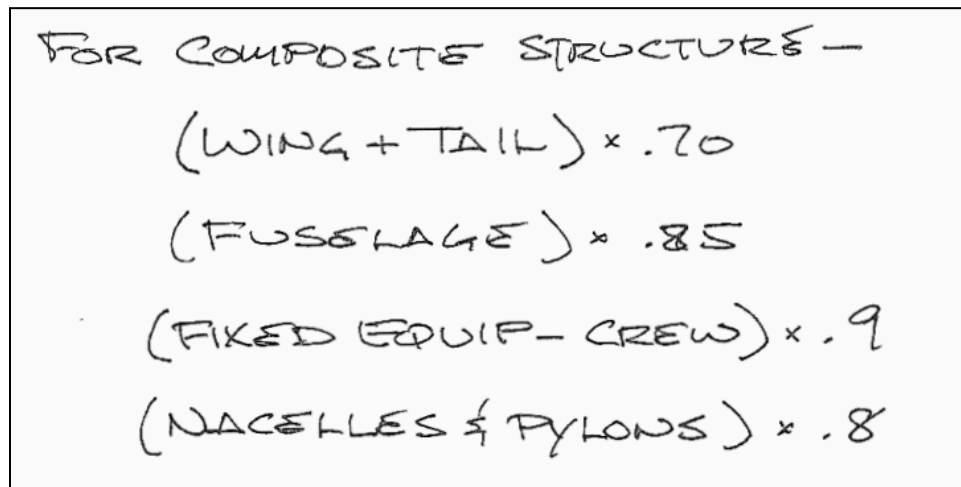 FOR COMPOSITE STRUCTURE -
(WING + TAIL) × .70
(FUSELAGE) × .85
(FIXED EQUIP - CREW) × .9
(NACELLES & PYLONS) × .8